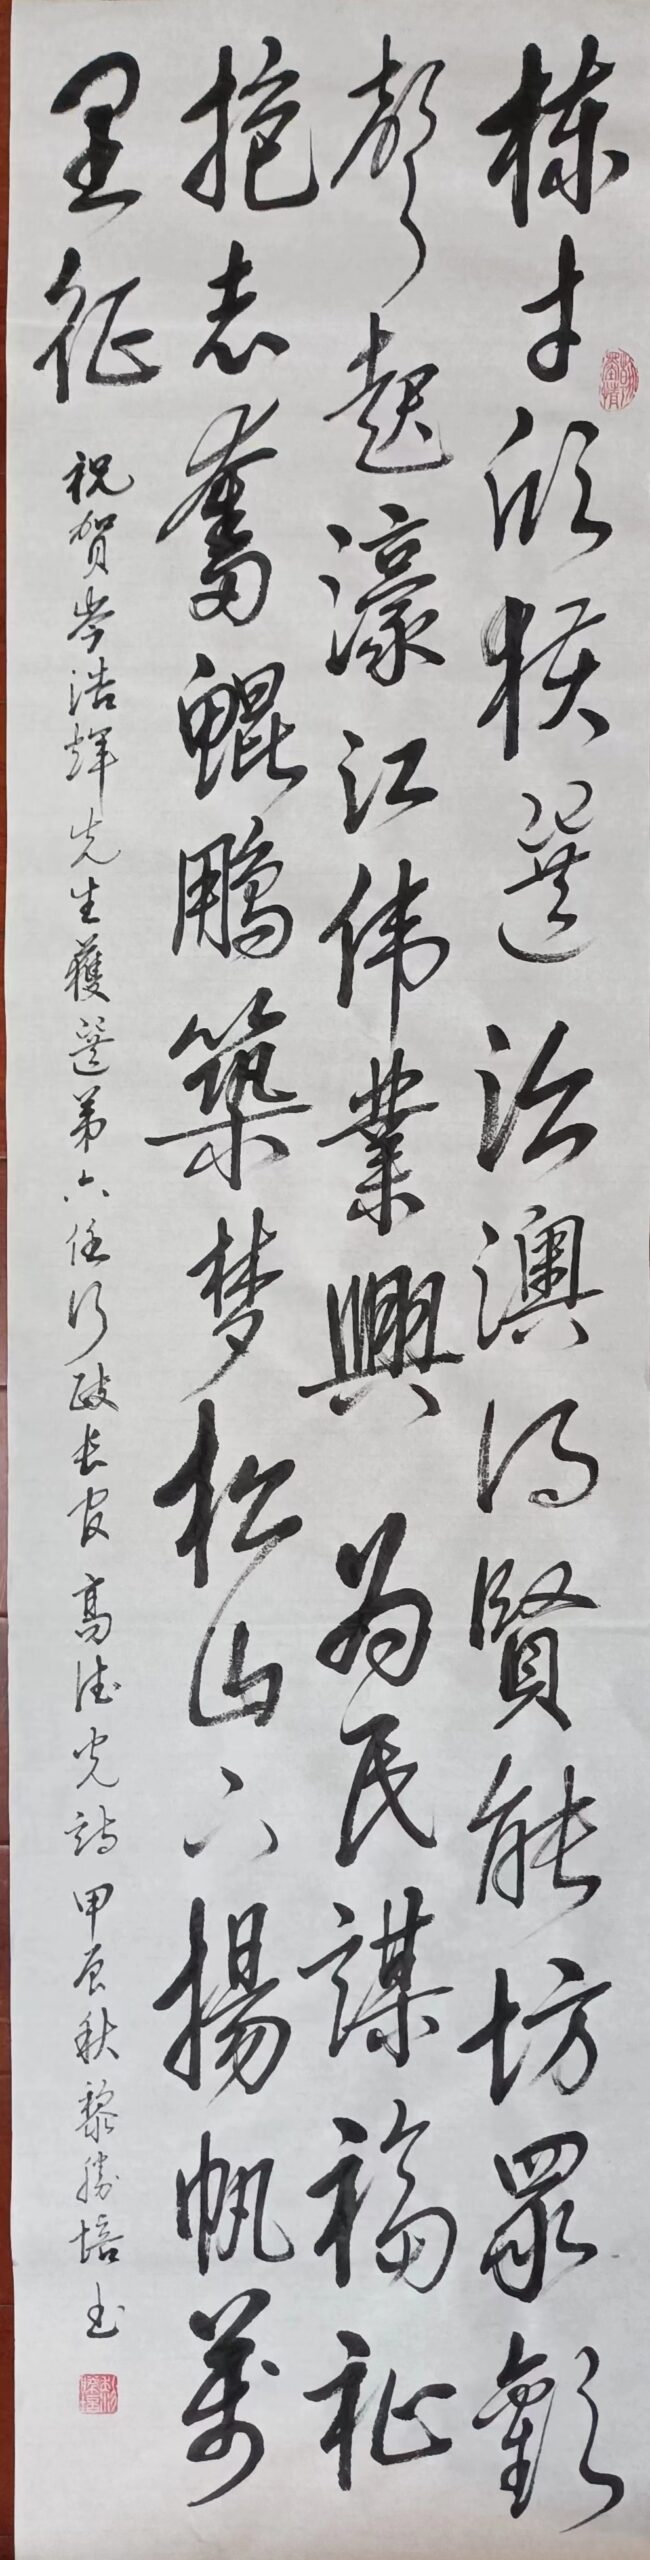 栋才欣获選治澳得賢能坊眾歡
聲起濠江伟業興為民謀福祉
抱志奮鯤鵬築梦松山下揚帆萬
里征
祝贺岑浩輝先生獲選第六任行政長官高德光詩甲辰秋黎勝培书